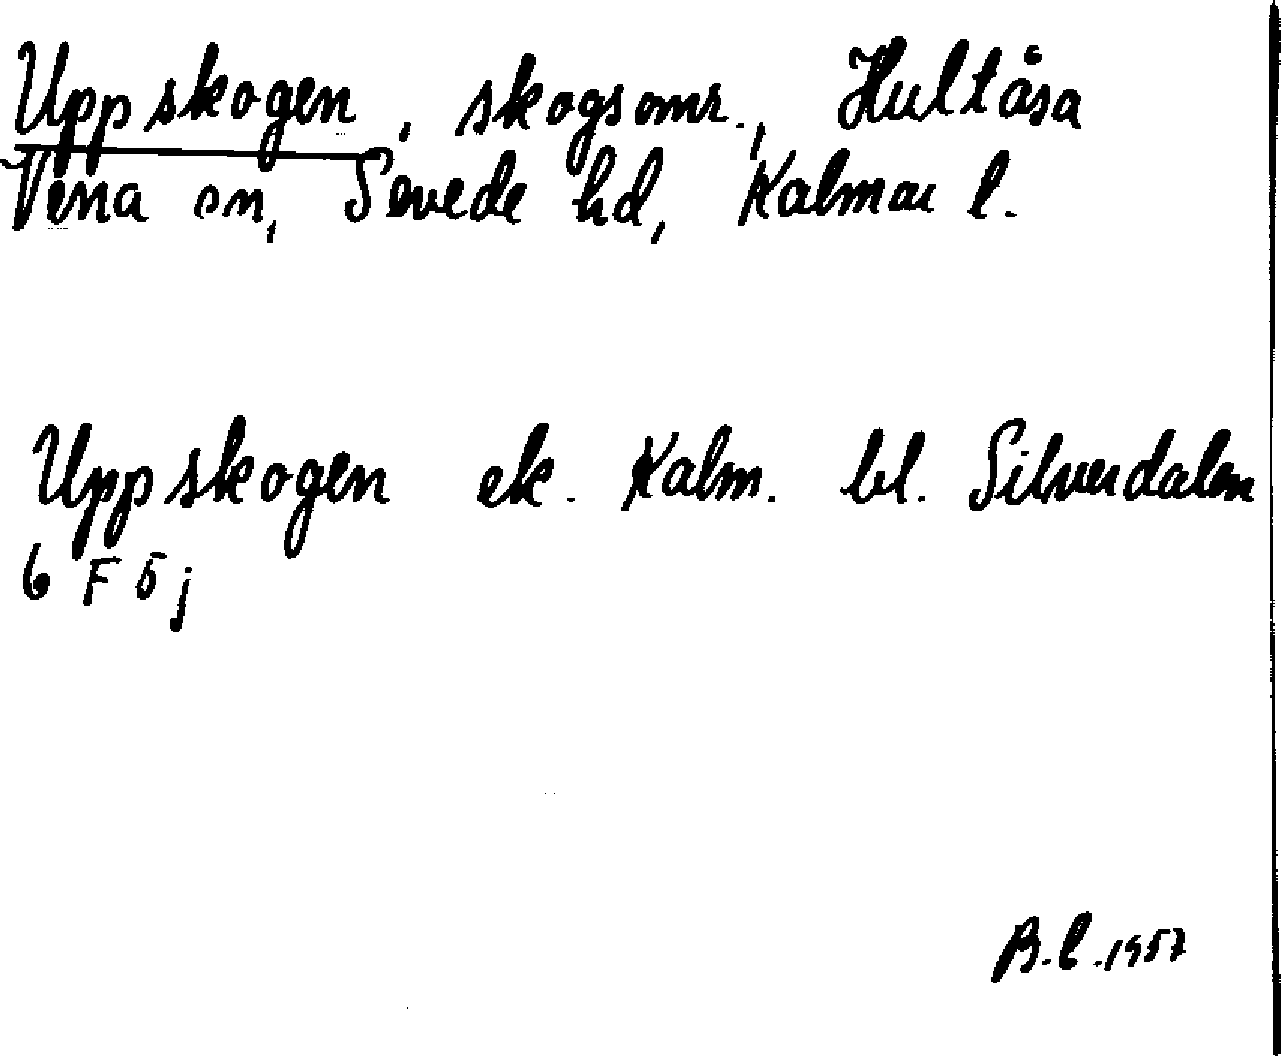 Uppskogen, skogsomr., Hultåsa
Vena sn, Sevede hd, Kalmar l.
Uppskogen ek. Kalm. bl. Silverdalen
6 F 5 j
B.L. 1957